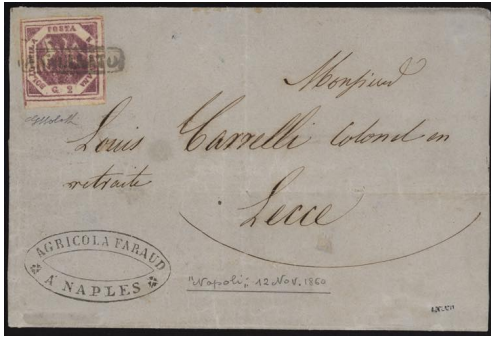 POSTA
NAPOLETANA
BOLLO DELLA
G. 2
ANNULLATO
Monsieur
Louis Carrelli Colonel en
retraite
Lecce
AGRICOLA FARAUD
A NAPLES
"Napoli", 12 Nov. 1860